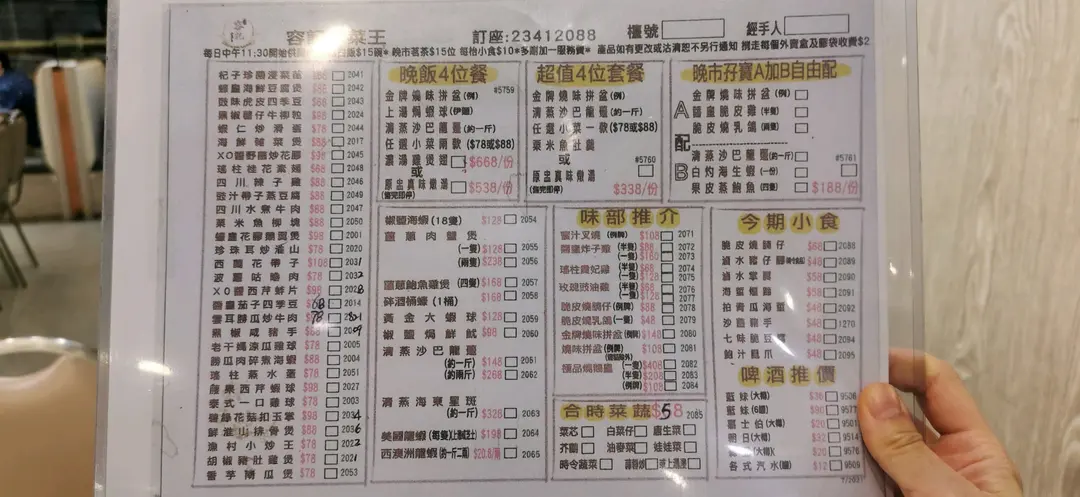 菜王
訂座:23412088
檯號
經手人
每日中午11:30開始供
飯$15碗* 晚市茗茶$15位 每枱小食$10*多劑加一服務費* 產品如有更改或沽清恕不另行通知 拐走每個外賣盒及膠袋收費$2
杞子珍菌浸菜苗 $88 2041
2042
豉味虎皮四季豆 $68 2043
黑椒薯仔牛柳粒 $98 2024
蝦仁炒滑蛋 $78 2044
海鮮雜菜煲 2017
XO醬野菌炒花腩 2045
瑤柱桂花素翅 $68 2048
四川辣子雞 $88 2046
豉汁帶子蒸豆腐 $88 2049
四川水煮牛肉 $88 2047
粟米魚柳燒 $88 2050
2001
珍珠耳炒淮山 $78 2020
西蘭花帶子 $108 2031
菠蘿咕嚕肉 $78 2032
XO醬西芹蚌片 $98 2028
茄子四季豆 68 2014
雲耳勝瓜炒牛肉 78
黑椒咸豬手 $88 2009
老干媽涼瓜雞 $78 2005
勝瓜肉碎煮海蝦 $88 2004
瑤柱蒸水蛋 $78 2051
腰果西芹蝦球 $98 2027
泰式一口雞球 $78 2003
碧綠花菇扣玉掌 $98 2034
鮮淮山排骨煲 $88 2036
漁村小炒王 $78 2022
胡椒豬肚雞煲 $78 2021
香芋南瓜煲 $78 2053
晚飯4位餐
金牌燒味拼盆(例) #5759
上湯焗蝦球(伊麵)
清蒸沙巴龍躉(約一斤)
任選小菜兩款($78或$88)
濃湯雞煲翅 $668/份
或
原盅真味燉湯 $538/份
(售完即停)
超值4位套餐
金牌燒味拼盆(例)
清蒸沙巴龍躉(約一斤)
任選小菜一款($78或$88)
粟米魚肚羹
或 #5760
原盅真味燉湯
(售完即停) $338/份
晚市孖寶A加B自由配
A
金牌燒味拼盆(例)
脆皮雞(半隻)
脆皮燒乳鴿(兩隻)
配
B
清蒸沙巴龍躉(約一斤) #5761
白灼海生蝦(一份)
果皮蒸鮑魚(四隻) $188/份
椒鹽海蝦(18隻) $128 2054
薑蔥肉蟹煲
(一隻) $128 2055
(兩隻) $238 2056
薑蔥鮑魚雞煲(四隻) $168 2057
砵酒桶蠔(1桶) $168 2058
黃金大蝦球 $128 2059
椒鹽焗鮮魷 $98 2060
清蒸沙巴龍躉
(約一斤) $148 2061
(約兩斤) $268 2062
清蒸海東星斑
(約一斤) $328 2063
美國龍蝦 $198 2064
西澳洲龍蝦(約一斤二兩) $20.8/兩 2065
味部推介
蜜汁叉燒(例牌) $108 2071
炸子雞(半隻) $88 2072
(一隻) $160 2073
瑤柱貴妃雞(半隻) $68 2074
(一隻) $128 2075
玫瑰豉油雞(半隻) $68 2076
(一隻) $128 2077
脆皮燒腩仔(例牌) $88 2078
脆皮燒乳鴿(一隻) $48 2079
金牌燒味拼盆(例牌) $148 2080
燒味拼盆(例牌) $108 2081
極品燒鵝皇(一隻) $408 2082
(半隻) $208 2083
(例牌) $108 2084
合時菜蔬 $58 2085
菜芯 白菜仔 唐生菜
芥蘭 油麥菜 娃娃菜
時令蔬菜 蒜蓉炒
今期小食
脆皮燒腩仔 $68 2088
滷水豬仔腳 $48 2089
滷水掌翼 $58 2090
海蜇 $58 2091
拍青瓜海蜇 $48 2092
沙薑豬手 $48 1270
七味脆豆腐 $48 2094
鮑汁鳳爪 $48 2095
啤酒推價
藍妹(大樽) $36 9506
藍妹(6罐) $90 9577
嘉士伯(大樽) 9501
朝日(大樽) $32 9514
(大樽) $20 9576
各式汽水(罐) $12 9509